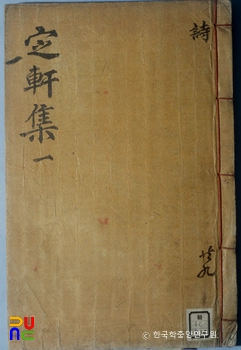 定軒集一
詩
共九
© 한국학중앙연구원